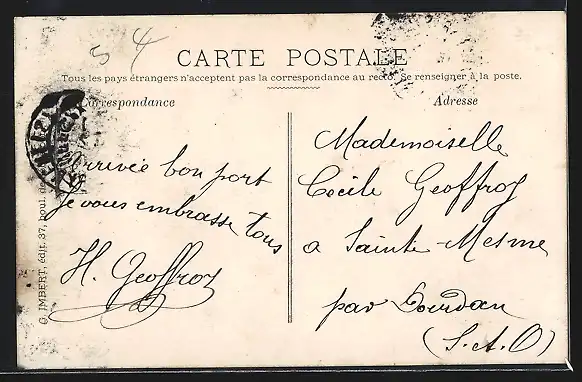 5 4
CARTE POSTALE
Tous les pays étrangers n'acceptent pas la correspondance au recto. Se renseigner à la poste.
Correspondance
Adresse
Arrivée bon port
Je vous embrasse tous
H. Geoffroy
Mademoiselle
Cécile Geoffroy
a Sainte-Mesme
par Dourdan
(S.-et-O)
G. IMBERT, édit. 37, boul. de